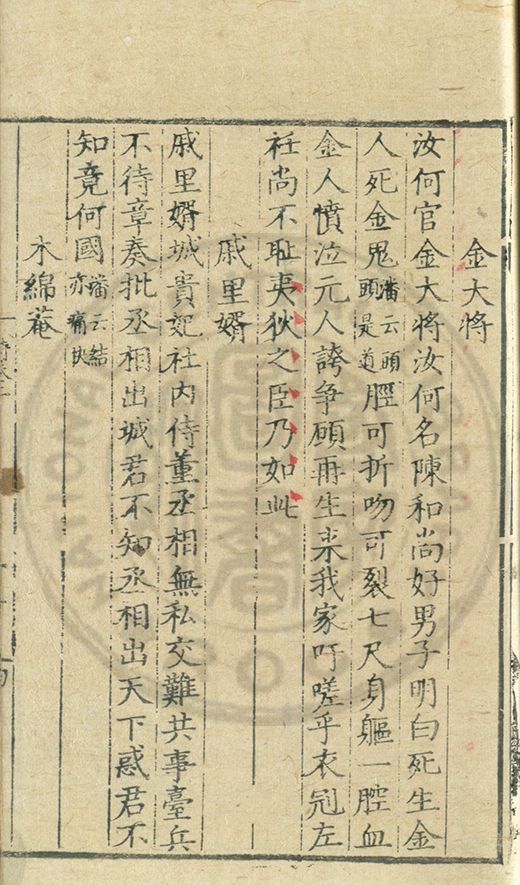 金大将
汝何官金大将汝何名陳和尚好男子明白死生金
人死金鬼潘云頭頭是道脛可折吻可裂七尺身軀一腔血
金人憤泣元人誇争願再生来我家吁嗟乎衣冠左
衽尚不耻夷狄之臣乃如此
戚里婿
戚里婿城貴妃社内侍董丞相無私交難共事臺兵
不待章奏批丞相出城君不知丞相出天下惑君不
知竟何國潘云結亦痛快
木綿菴